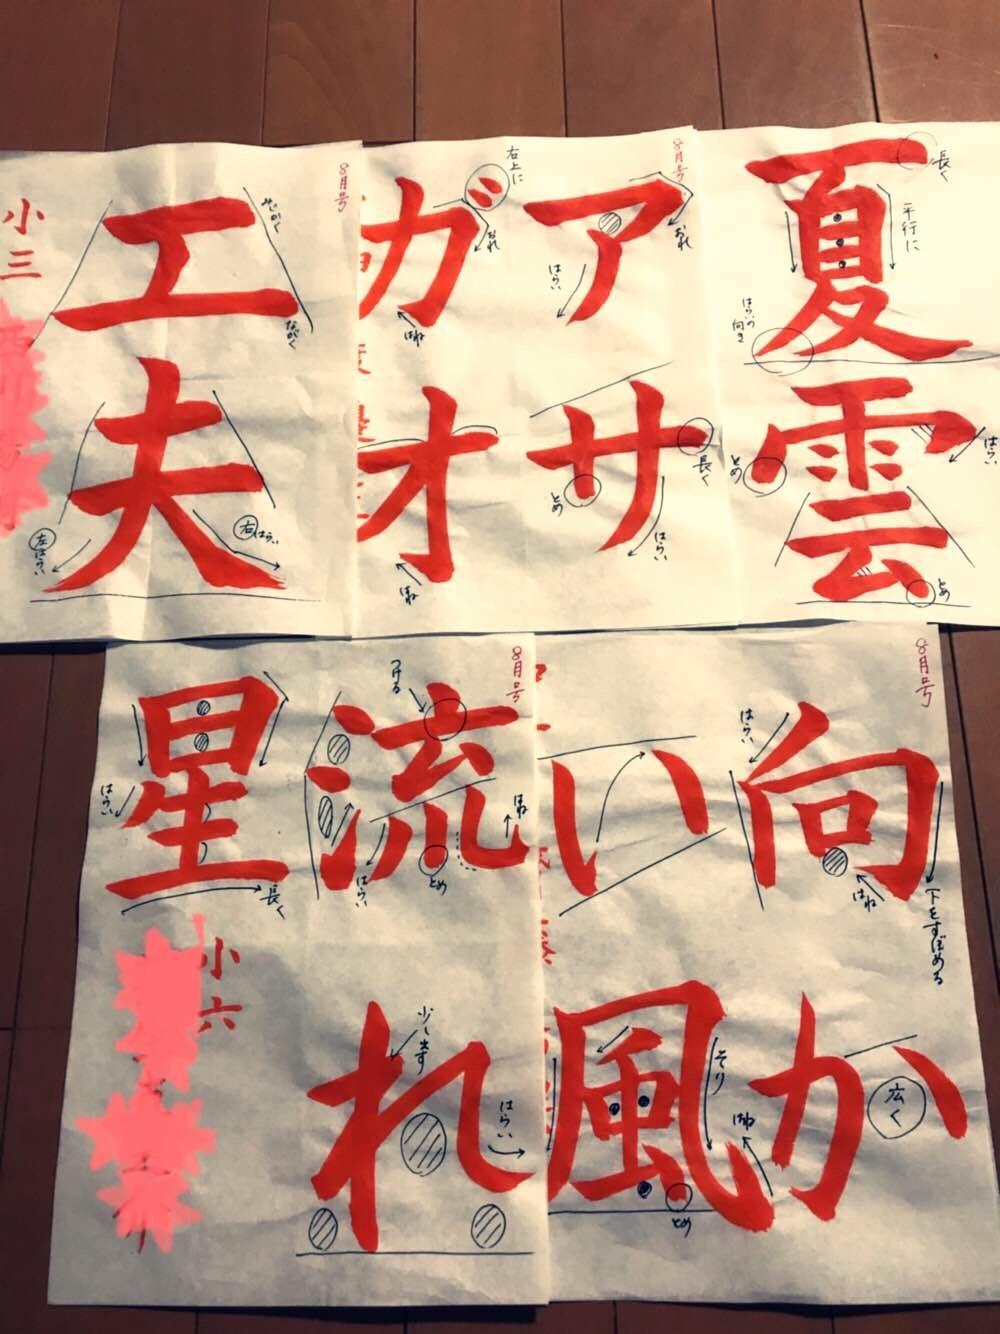 8月号
工夫
みじかく
ながく
左はらい
右はらい
小三
8月号
アサガオ
おれ
はらい
長く
とめ
はらい
右上に
おれ
はね
はね
夏雲
長く
平行に
はらいの向き
はらい
とめ
とめ
8月号
流れ星
つける
はね
とめ
はらい
少し出す
はらい
はらい
長く
小六
8月号
向かい風
はらい
はね
下をすぼめる
広く
そり
はね
とめ